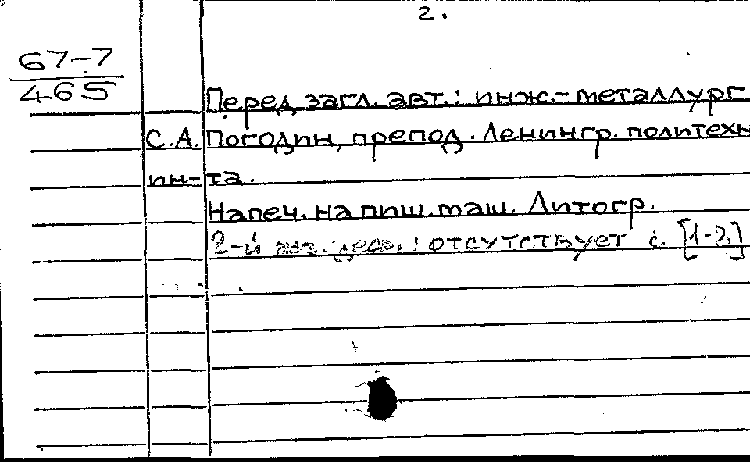 2.
67-7
465
Перед загл. авт.: инж.-металлург
С.А. Погодин, препод. Ленингр. политехн
ин-та.
Напеч. на пиш. маш. Литогр.
2-й экз. деф.: отсутствует с. [1-2]